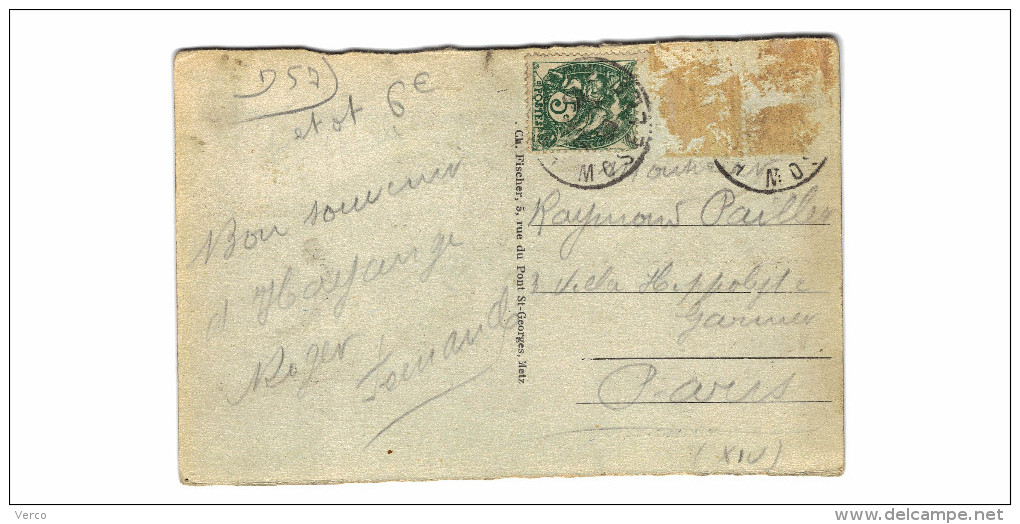 D57
etat 6€
Bon souvenir
d'Hayange
Roger Fernand
Ch. Fischer, 5, rue du Pont St-Georges, Metz
POSTES
5c
MOS
MOS
Monsieur
Raymond Pailler
3 Villa Hippolyte
Garnier
Paris
(XIV)
Verco
delcampe.net